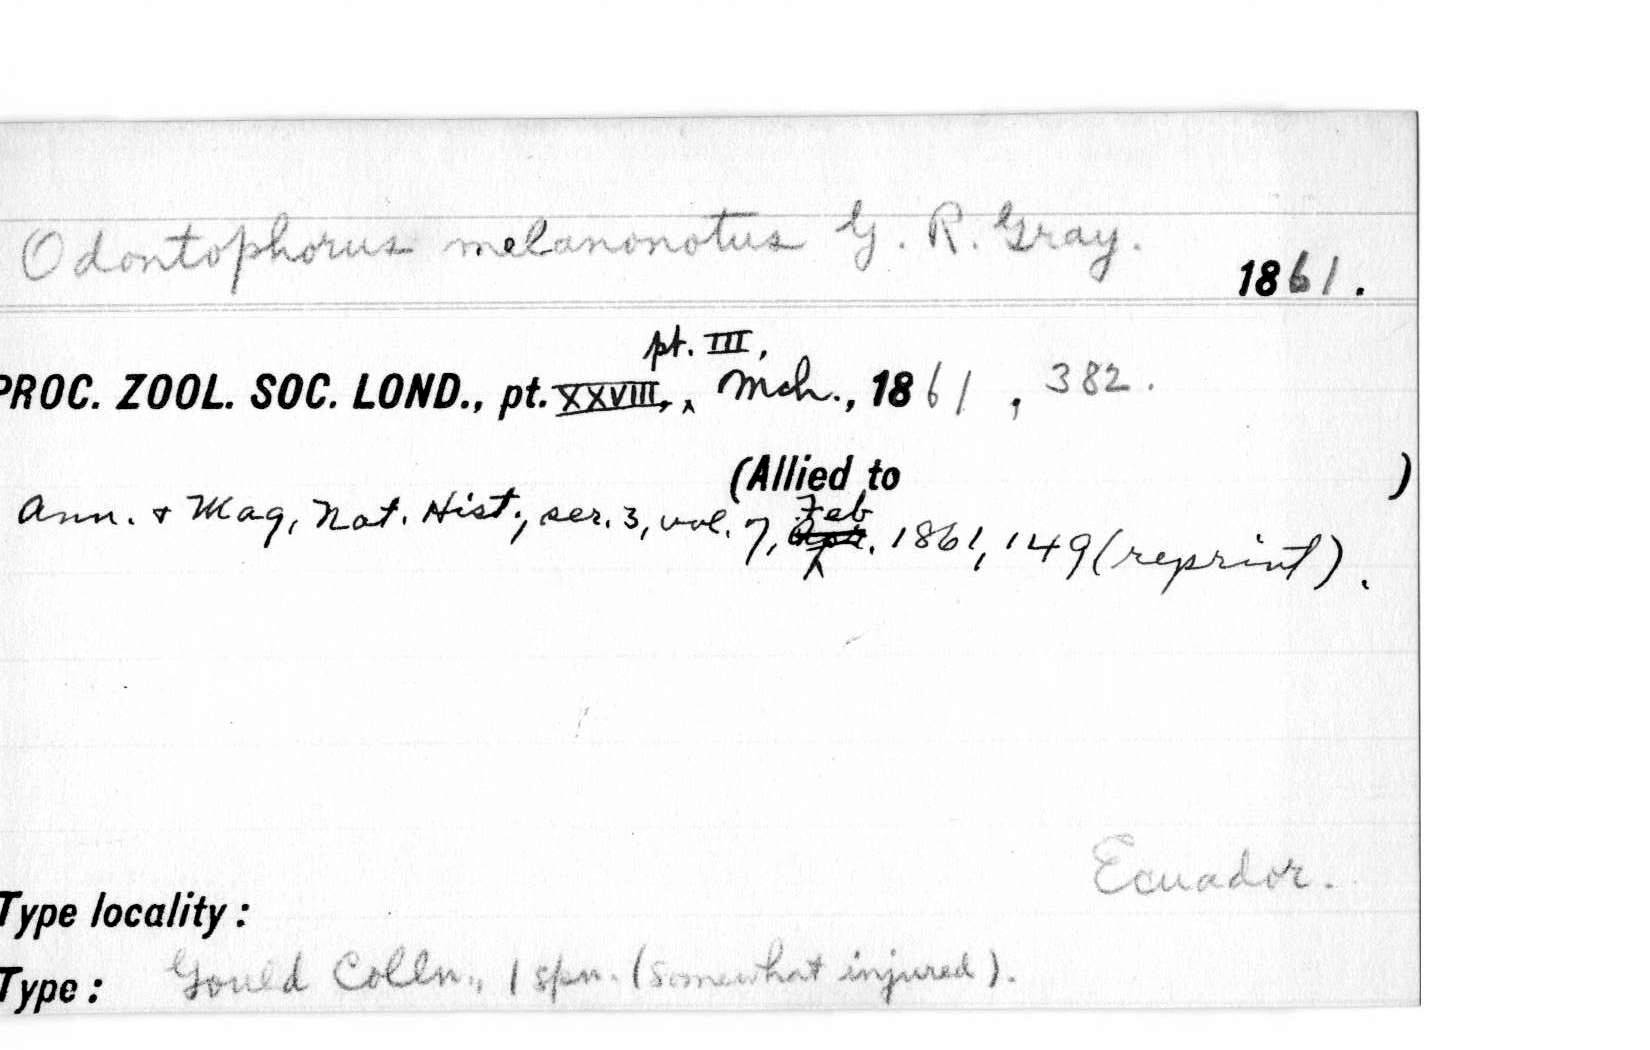 Odontophorus melanonotus G. R. Gray.
1861.
pt. III,
PROC. ZOOL. SOC. LOND., pt. XXVIII, ‸ Mch., 1861, 382.
(Allied to )
Feb
Ann. & Mag. Nat. Hist., ser. 3, vol. 7, Apr. 1861, 149 (reprint).
Ecuador.
Type locality:
Type: Gould Colln., 1 spn. (somewhat injured).